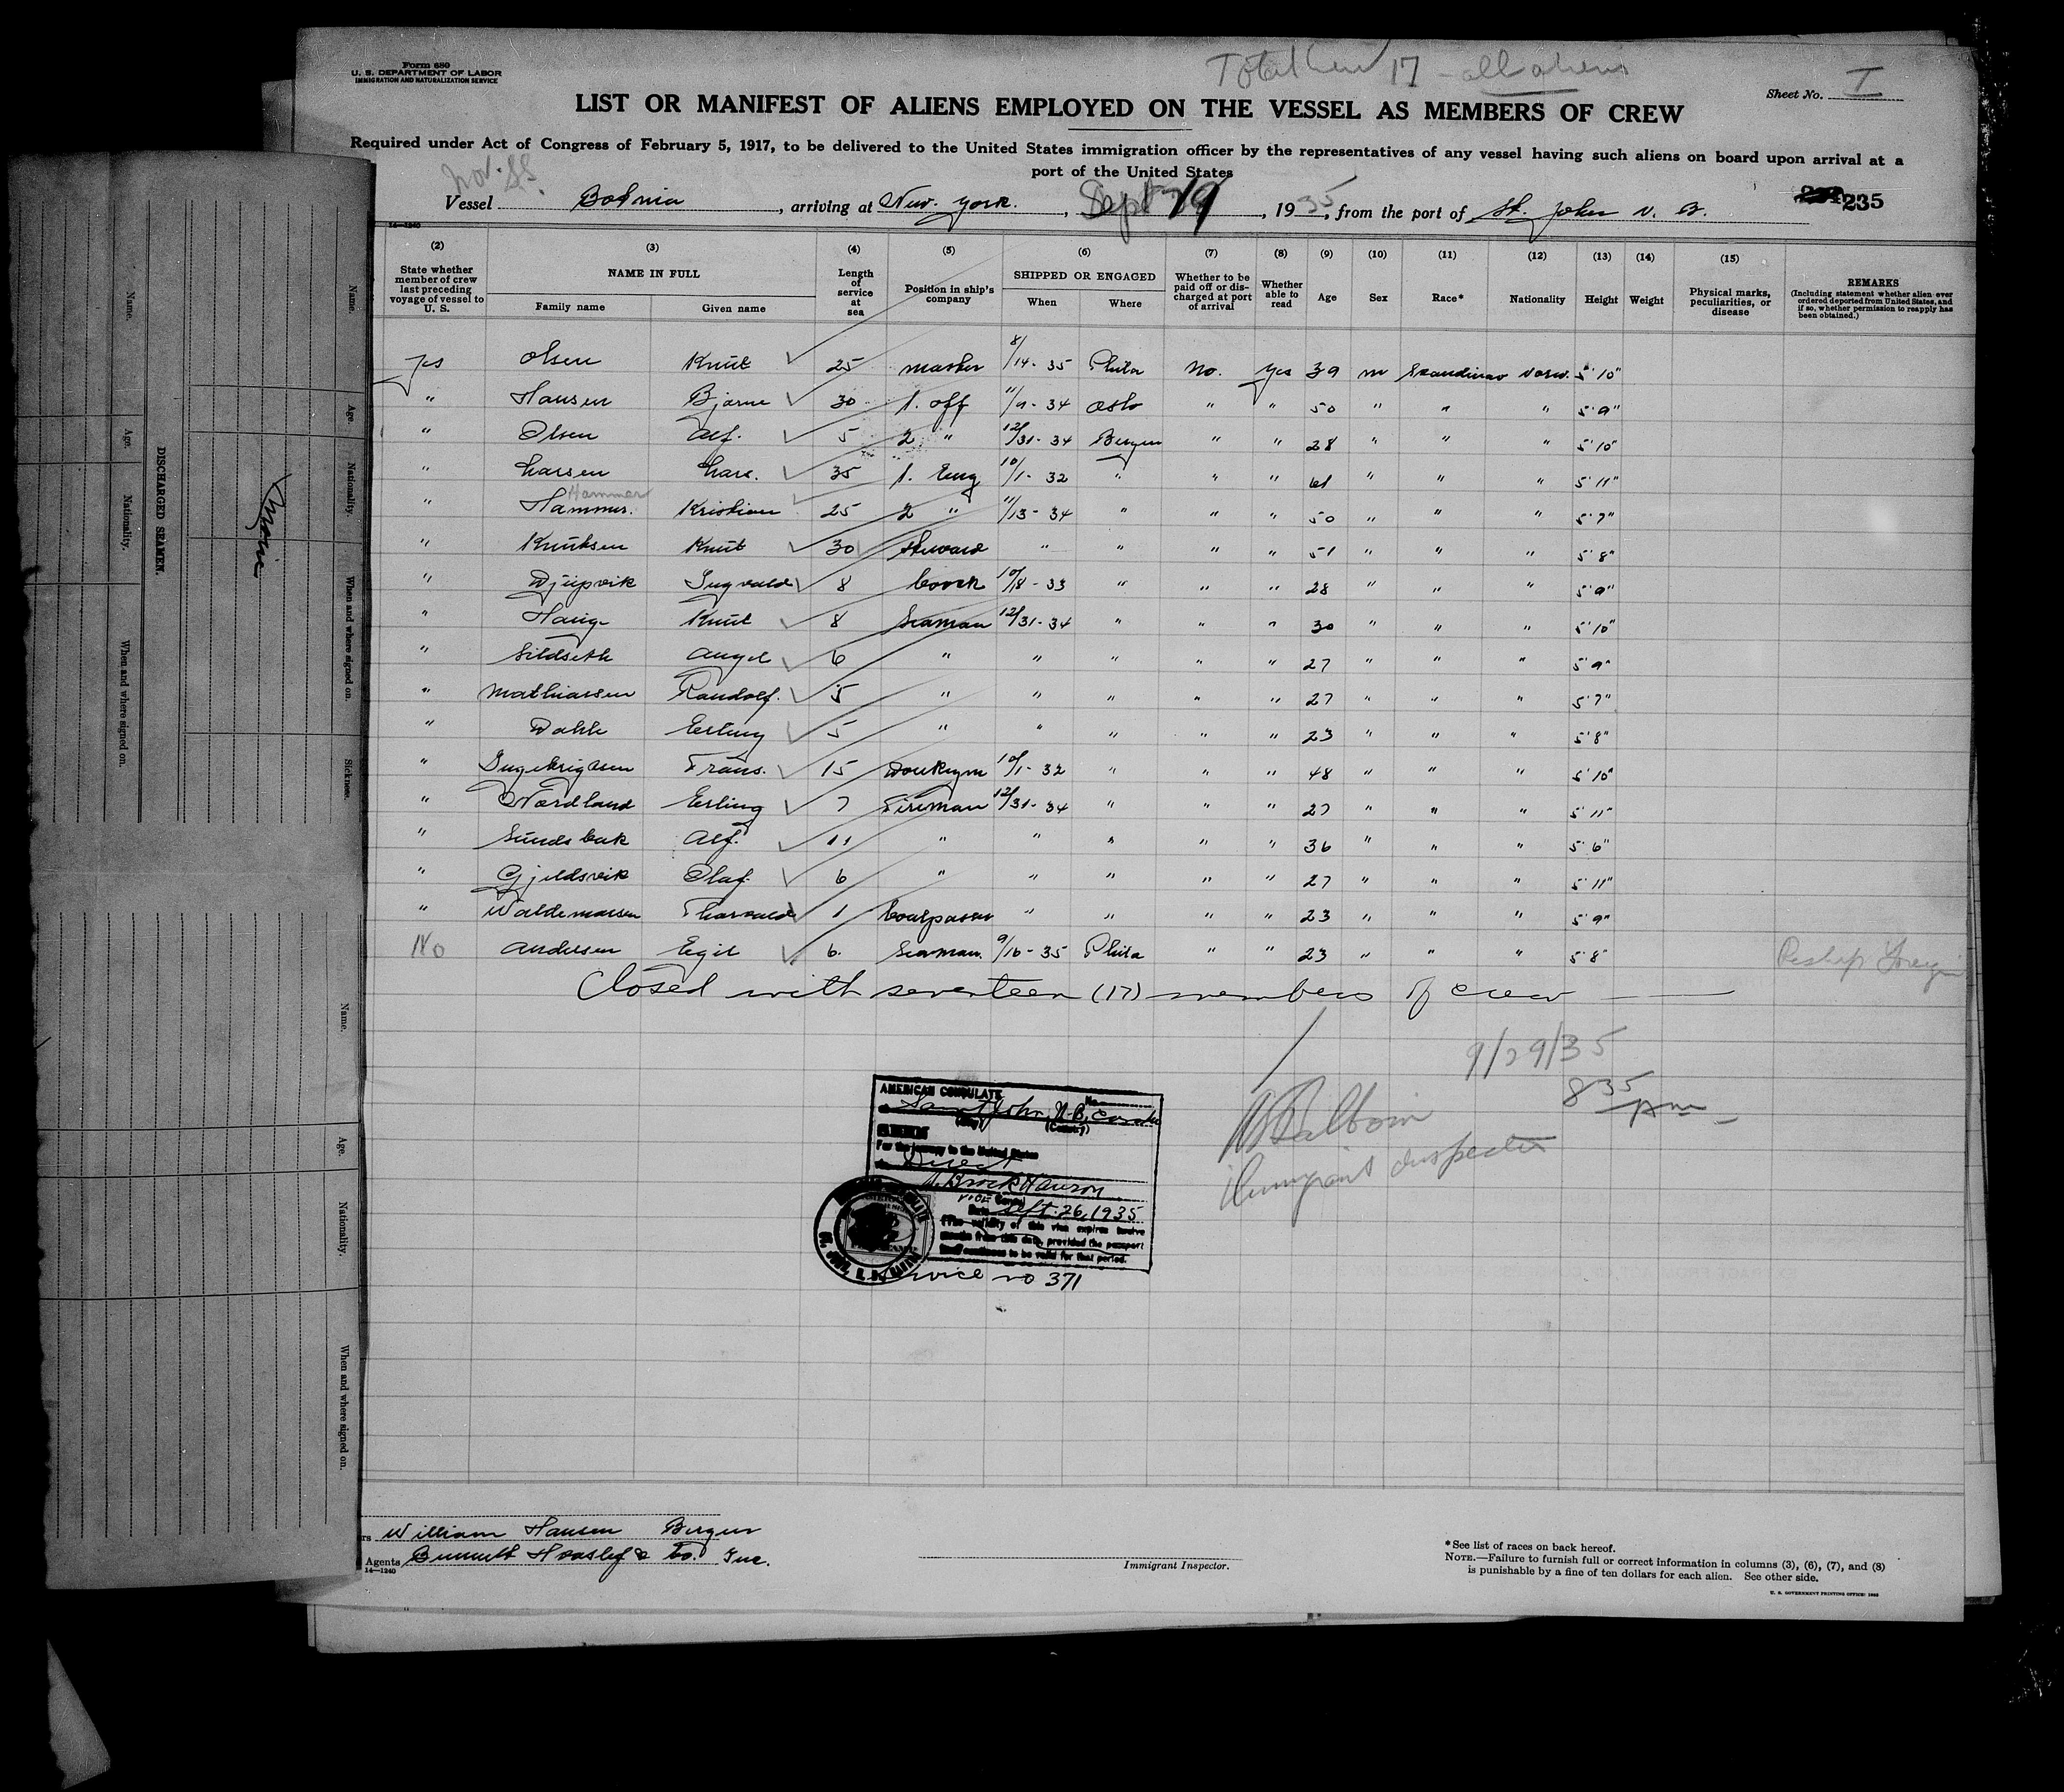 Form 680
U. S. DEPARTMENT OF LABOR
IMMIGRATION AND NATURALIZATION SERVICE
Total Crew 17 - all aliens
Sheet No. I
LIST OR MANIFEST OF ALIENS EMPLOYED ON THE VESSEL AS MEMBERS OF CREW
Required under Act of Congress of February 5, 1917, to be delivered to the United States immigration officer by the representatives of any vessel having such aliens on board upon arrival at a
port of the United States
Nor. SS.
Vessel Botnia, arriving at New. York., Sept 29, 1935, from the port of St. John N. B.
235
14—1240
(2) (3) (4) (5) (6) (7) (8) (9) (10) (11) (12) (13) (14) (15)
State whether member of crew last preceding voyage of vessel to U. S.
NAME IN FULL
Family name Given name
Length of service at sea
Position in ship's company
SHIPPED OR ENGAGED
When Where
Whether to be paid off or discharged at port of arrival
Whether able to read
Age Sex Race* Nationality Height Weight
Physical marks, peculiarities, or disease
REMARKS
(Including statement whether alien ever ordered deported from United States, and if so, whether permission to reapply has been obtained.)
yes Olsen Knut 25 master 8/14-35 Phila No. yes 39 m Scandinav Norw. 5'10"
" Hansen Bjarne 30 1. off 11/9-34 Oslo " " 50 " " " 5'9"
" Olsen Alf. 5 2 " 12/31-34 Bergen " " 28 " " " 5'10"
" Larsen Lars. 35 1. Eng 10/1-32 " " " 61 " " " 5'11"
Hammer
" Hammer. Kristian 25 2 " 11/13-34 " " " 50 " " " 5'7"
" Knutsen Knut 30 Steward " " " " 51 " " " 5'8"
" Djupvik Ingvald 8 Coock 10/18-33 " " " 28 " " " 5'9"
" Haug Knut 8 Seaman 12/31-34 " " " 30 " " " 5'10"
" Sildseth Angel 6 " " " " " 27 " " " 5'9"
" Mathiassen Randolf. 5 " " " " " 27 " " " 5'7"
" Dahle Erling 5 " " " " " 23 " " " 5'8"
" Ingebrigtsen Frans. 15 Donkeym 10/1-32 " " " 48 " " " 5'10"
" Nordland Erling 7 Fireman 12/31-34 " " " 27 " " " 5'11"
" Sundsbak Alf. 11 " " " " " 36 " " " 5'6"
" Gjeldsvik Olaf. 6 " " " " " 27 " " " 5'11"
" Waldemarsen Thorvald 1 Coalpasser " " " " 23 " " " 5'9"
No Andersen Egil 6. Seaman. 9/16-35 Phila " " 23 " " " 5'8" Reship Foreign
Closed with seventeen (17) members of crew
9/29/35
8 35 pm
Immigrant Inspector
AMERICAN CONSULATE No.
at Saint John, N.B., Canada
(City) (Country)
For the journey to the United States
Direct
Brock Havron
Vice Consul
Date Sept. 26, 1935
(The validity of this visa expires twelve
months from this date, provided the passport
itself continues to be valid for that period.
Service no 371
William Hansen Bergen
Agents Bennett Hvoslef & Co. Inc.
14—1240
Immigrant Inspector.
*See list of races on back hereof.
NOTE.—Failure to furnish full or correct information in columns (3), (6), (7), and (8)
is punishable by a fine of ten dollars for each alien. See other side.
U. S. GOVERNMENT PRINTING OFFICE
DISCHARGED SEAMEN.
Name. Age. Nationality. When and where signed on.
Name. Age. Nationality. When and where signed on. Sickness.
Name. Age. Nationality. When and where signed on.